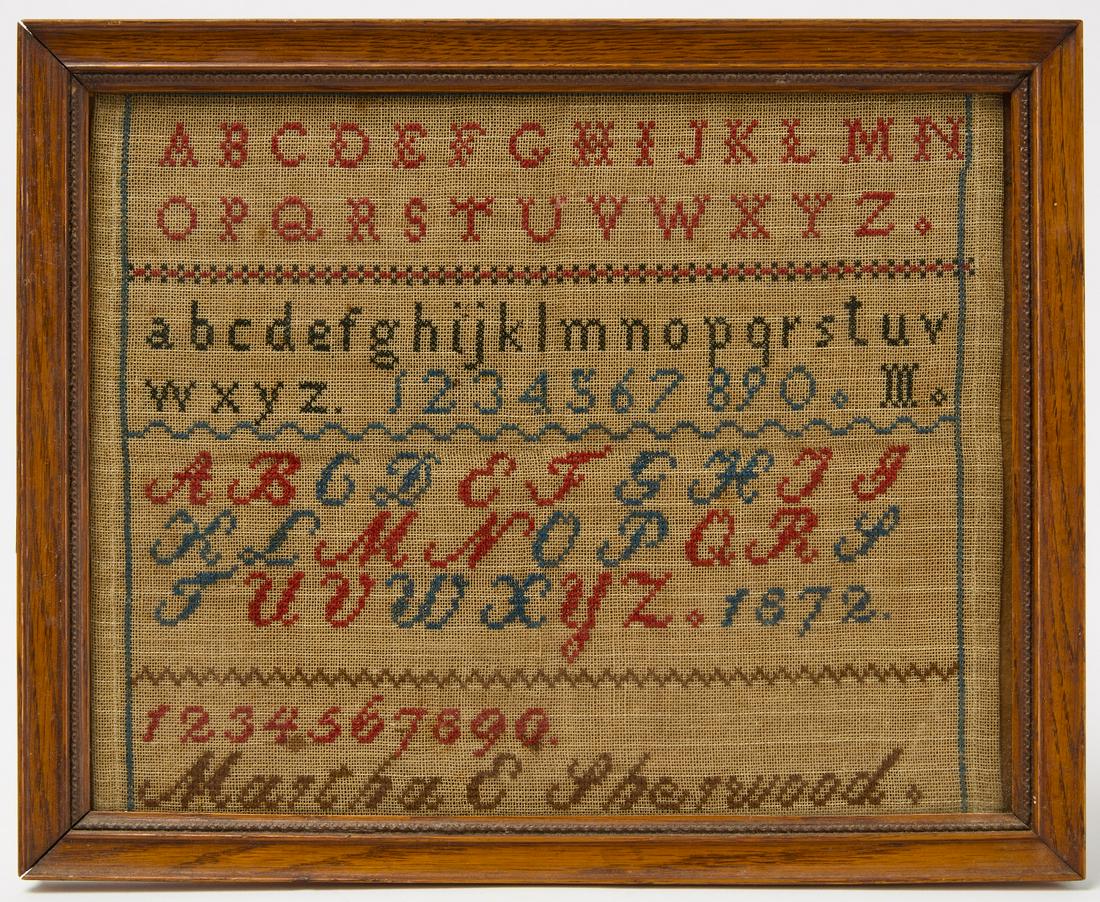 A B C D E F G H I J K L M N
O P Q R S T U V W X Y Z.
a b c d e f g h i j k l m n o p q r s t u v
w x y z. 1 2 3 4 5 6 7 8 9 0.
A B C D E F G H I J
K L M N O P Q R S
T U V W X Y Z. 1872.
1 2 3 4 5 6 7 8 9 0.
Martha E Sherwood.